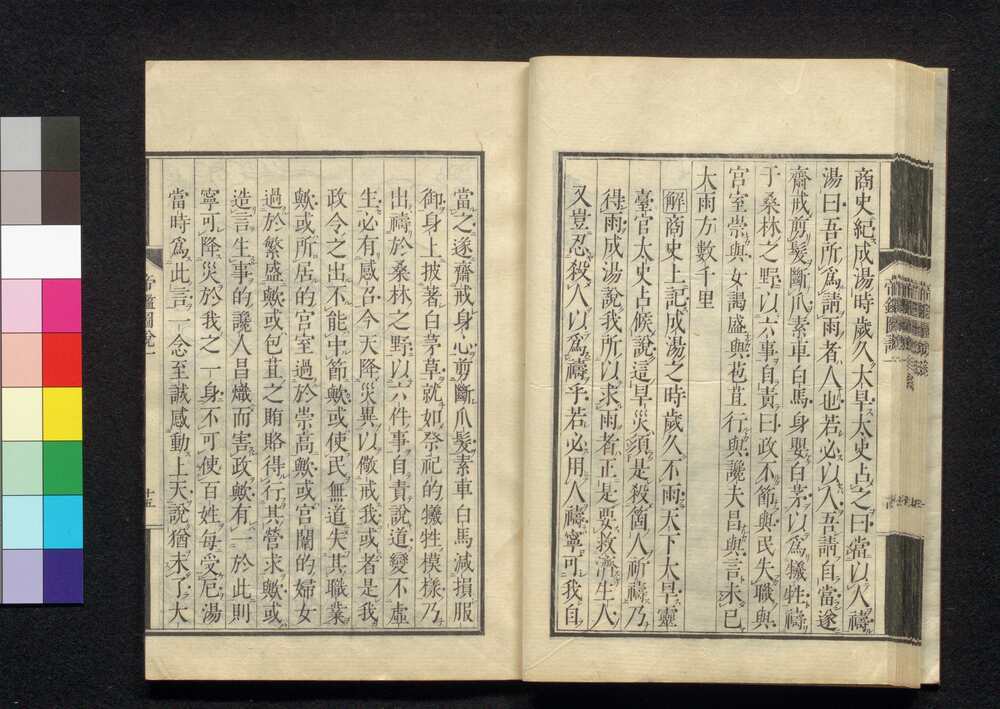 商史紀成湯時歲久大旱太史占之曰當以人禱
湯曰吾所爲請雨者人也若必以人吾請自當遂
齋戒剪髮斷爪素車白馬身嬰白茅以爲犧牲禱
于桑林之野以六事自責曰政不節與民失職與
宮室崇與女謁盛與苞苴行與讒夫昌與言未已
大雨方數千里
解商史上記成湯之時歲久不雨天下大旱靈
臺官太史占候說這旱災須是殺箇人祈禱乃
得雨成湯說我所以求雨者正是要救濟生人
又豈忍殺人以爲禱乎若必用人禱寧可我自
當之遂齋戒身心剪斷爪髮素車白馬減損服
御身上披著白茅草就如祭祀的犧牲模樣乃
出禱於桑林之野以六件事自責說道變不虛
生必有感召今天降災異以儆戒我或者是我
政令之出不能中節歟或使民無道失其職業
歟或所居的宮室過於崇高歟或宮闈的婦女
過於繁盛歟或包苴之賄賂得行其營求歟或
造言生事的讒人昌熾而害政歟有一於此則
寧可降災於我之一身不可使百姓每受厄湯
當時爲此言一念至誠感動上天說猶未了大
帝鑑圖說一
十五